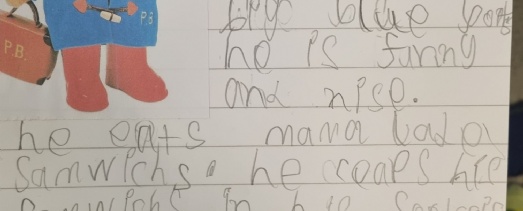 P.B.
P.B.
blue
he is funny
and nise.
he eats mama lade
Samwichs. he ceaps hie
in